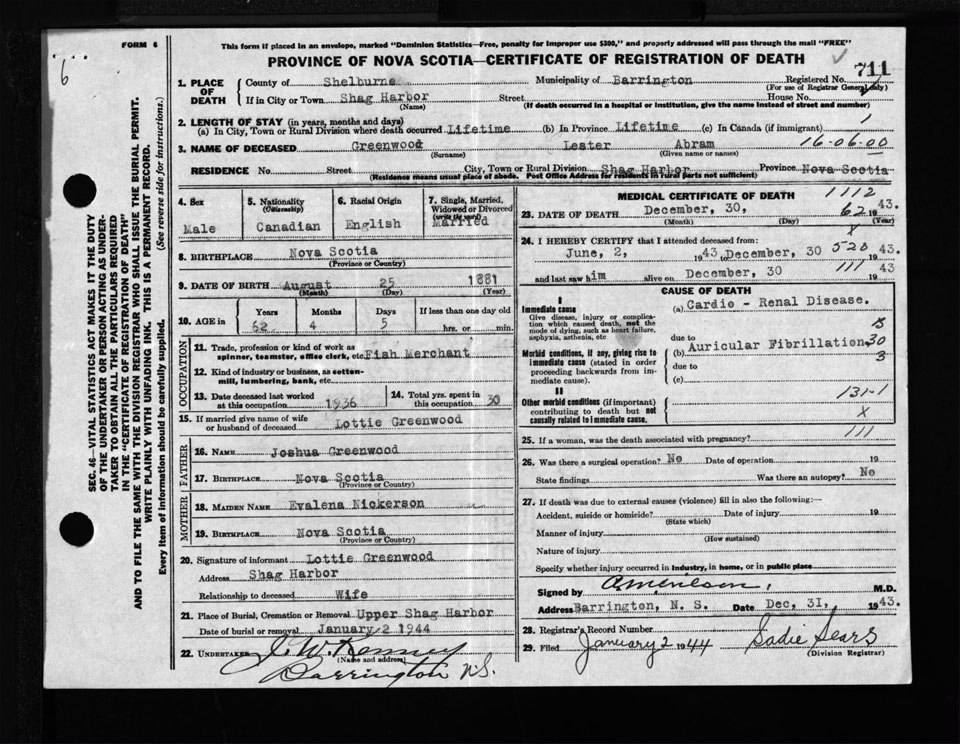 FORM 6
6
This form if placed in an envelope, marked "Dominion Statistics—Free, penalty for improper use $300," and properly addressed will pass through the mail "FREE"
PROVINCE OF NOVA SCOTIA—CERTIFICATE OF REGISTRATION OF DEATH
711
1. PLACE OF DEATH
County of Shelburne Municipality of Barrington Registered No.
(For use of Registrar General only)
If in City or Town Shag Harbor Street House No.
(Name) (If death occurred in a hospital or institution, give the name instead of street and number)
2. LENGTH OF STAY (in years, months and days)
(a) In City, Town or Rural Division where death occurred Lifetime (b) In Province Lifetime (c) In Canada (if immigrant) 1
3. NAME OF DECEASED Greenwood Lester Abram 16-06-00
(Surname) (Given name or names)
RESIDENCE No. Street City, Town or Rural Division Shag Harbor Province Nova Scotia
(Residence means usual place of abode. Post Office Address for residents in rural parts not sufficient)
4. Sex
Male
5. Nationality (Citizenship)
Canadian
6. Racial Origin
English
7. Single, Married, Widowed or Divorced (write the word)
Married
8. BIRTHPLACE Nova Scotia
(Province or Country)
9. DATE OF BIRTH August 25 1881
(Month) (Day) (Year)
10. AGE in
Years Months Days If less than one day old
62 4 5 hrs. or min.
OCCUPATION
11. Trade, profession or kind of work as spinner, teamster, office clerk, etc. Fish Merchant
12. Kind of industry or business, as cotton-mill, lumbering, bank, etc.
13. Date deceased last worked at this occupation 1936
14. Total yrs. spent in this occupation 30
15. If married give name of wife or husband of deceased Lottie Greenwood
FATHER
16. NAME Joshua Greenwood
17. BIRTHPLACE Nova Scotia
(Province or Country)
MOTHER
18. MAIDEN NAME Evalena Nickerson
19. BIRTHPLACE Nova Scotia
(Province or Country)
20. Signature of informant Lottie Greenwood
Address Shag Harbor
Relationship to deceased Wife
21. Place of Burial, Cremation or Removal Upper Shag Harbor
Date of burial or removal January 2 1944
22. UNDERTAKER J. W. Kenney
(Name and address)
Barrington N.S.
MEDICAL CERTIFICATE OF DEATH 1112
23. DATE OF DEATH December, 30, 62 1943.
(Month) (Day) (Year)
x
24. I HEREBY CERTIFY that I attended deceased from:
June, 2, 1943 to December, 30 520 43.
and last saw him alive on December, 30 111 43
CAUSE OF DEATH
I
Immediate cause
Give disease, injury or complication which caused death, not the mode of dying, such as heart failure, asphyxia, asthenia, etc
(a) Cardio - Renal Disease.
due to
Morbid conditions, if any, giving rise to immediate cause (stated in order proceeding backwards from immediate cause).
(b) Auricular Fibrillation 30
3
due to
(c)
II
Other morbid conditions (if important) contributing to death but not causally related to immediate cause.
131-1
x
25. If a woman, was the death associated with pregnancy? 111
26. Was there a surgical operation? No Date of operation 19
State findings Was there an autopsy? No
27. If death was due to external causes (violence) fill in also the following:—
Accident, suicide or homicide? Date of injury 19
(State which)
Manner of injury
(How sustained)
Nature of injury
Specify whether injury occurred in industry, in home, or in public place
Signed by M.D.
Address Barrington, N. S. Date Dec, 31, 1943.
28. Registrar's Record Number
29. Filed January 2 1944 Sadie Sears
(Division Registrar)
SEC. 46—VITAL STATISTICS ACT MAKES IT THE DUTY
OF THE UNDERTAKER OR PERSON ACTING AS UNDER-
TAKER TO OBTAIN ALL THE PARTICULARS REQUIRED
IN THE "CERTIFICATE OF REGISTRATION OF DEATH"
AND TO FILE THE SAME WITH THE DIVISION REGISTRAR WHO SHALL ISSUE THE BURIAL PERMIT.
WRITE PLAINLY WITH UNFADING INK. THIS IS A PERMANENT RECORD.
Every item of information should be carefully supplied. (See reverse side for instructions.)